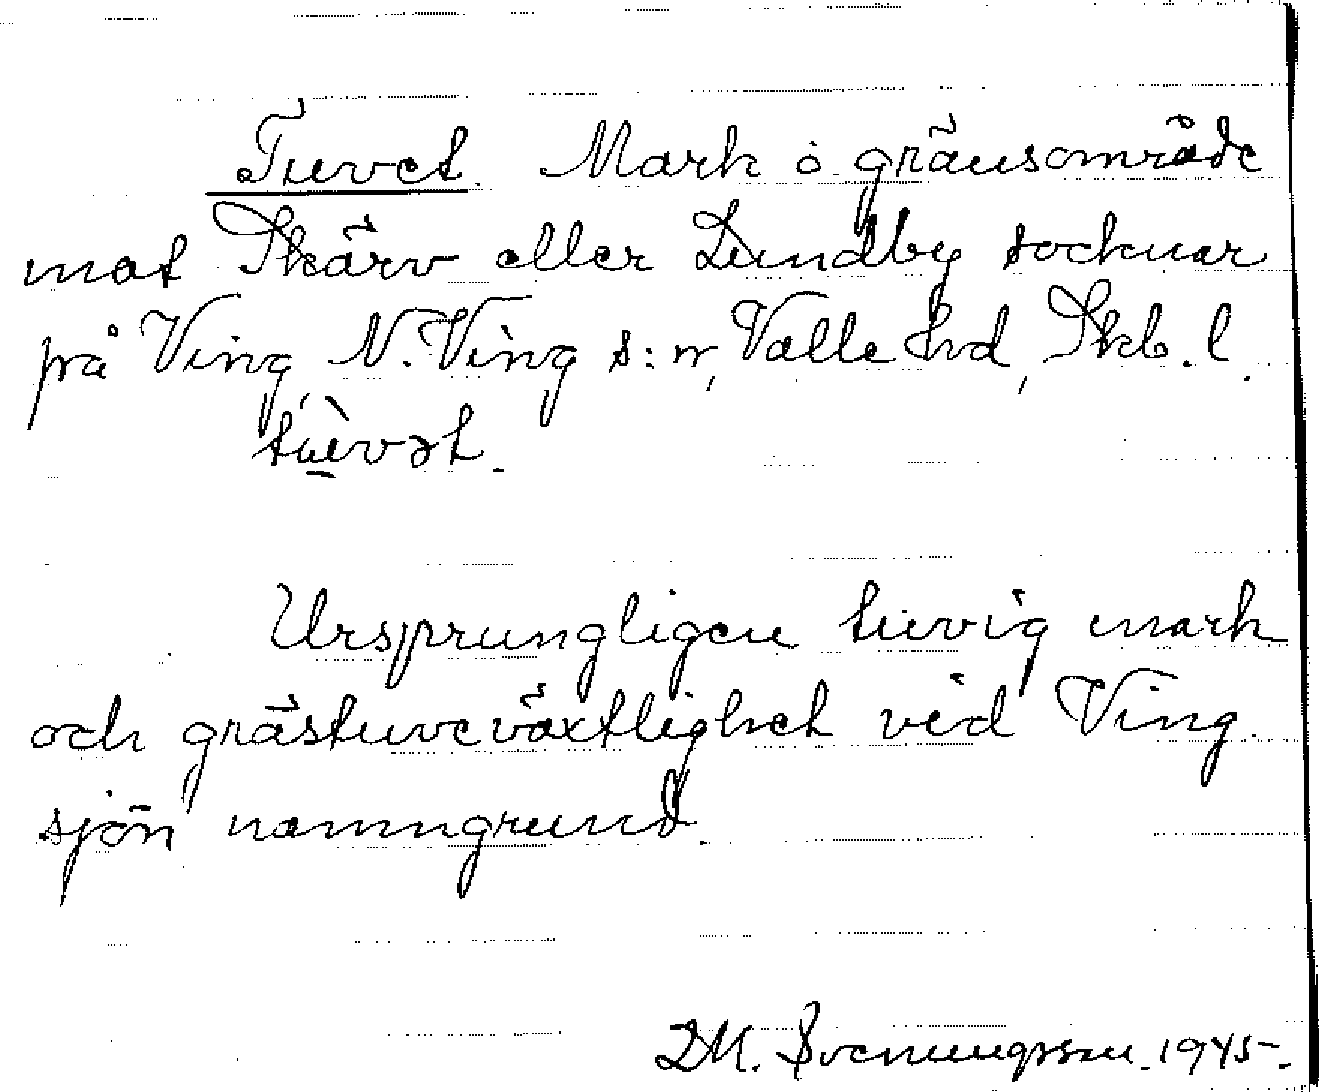 Tuvet. Mark o gränsområde
mot Skärv eller Lundby socknar
på Ving, N. Ving s:n, Valle hd, Skb. l.
Ursprungligen tuvig mark
och grästuveväxtlighet vid Ving
sjön namngrund.
D.M. Svenungsson. 1945.